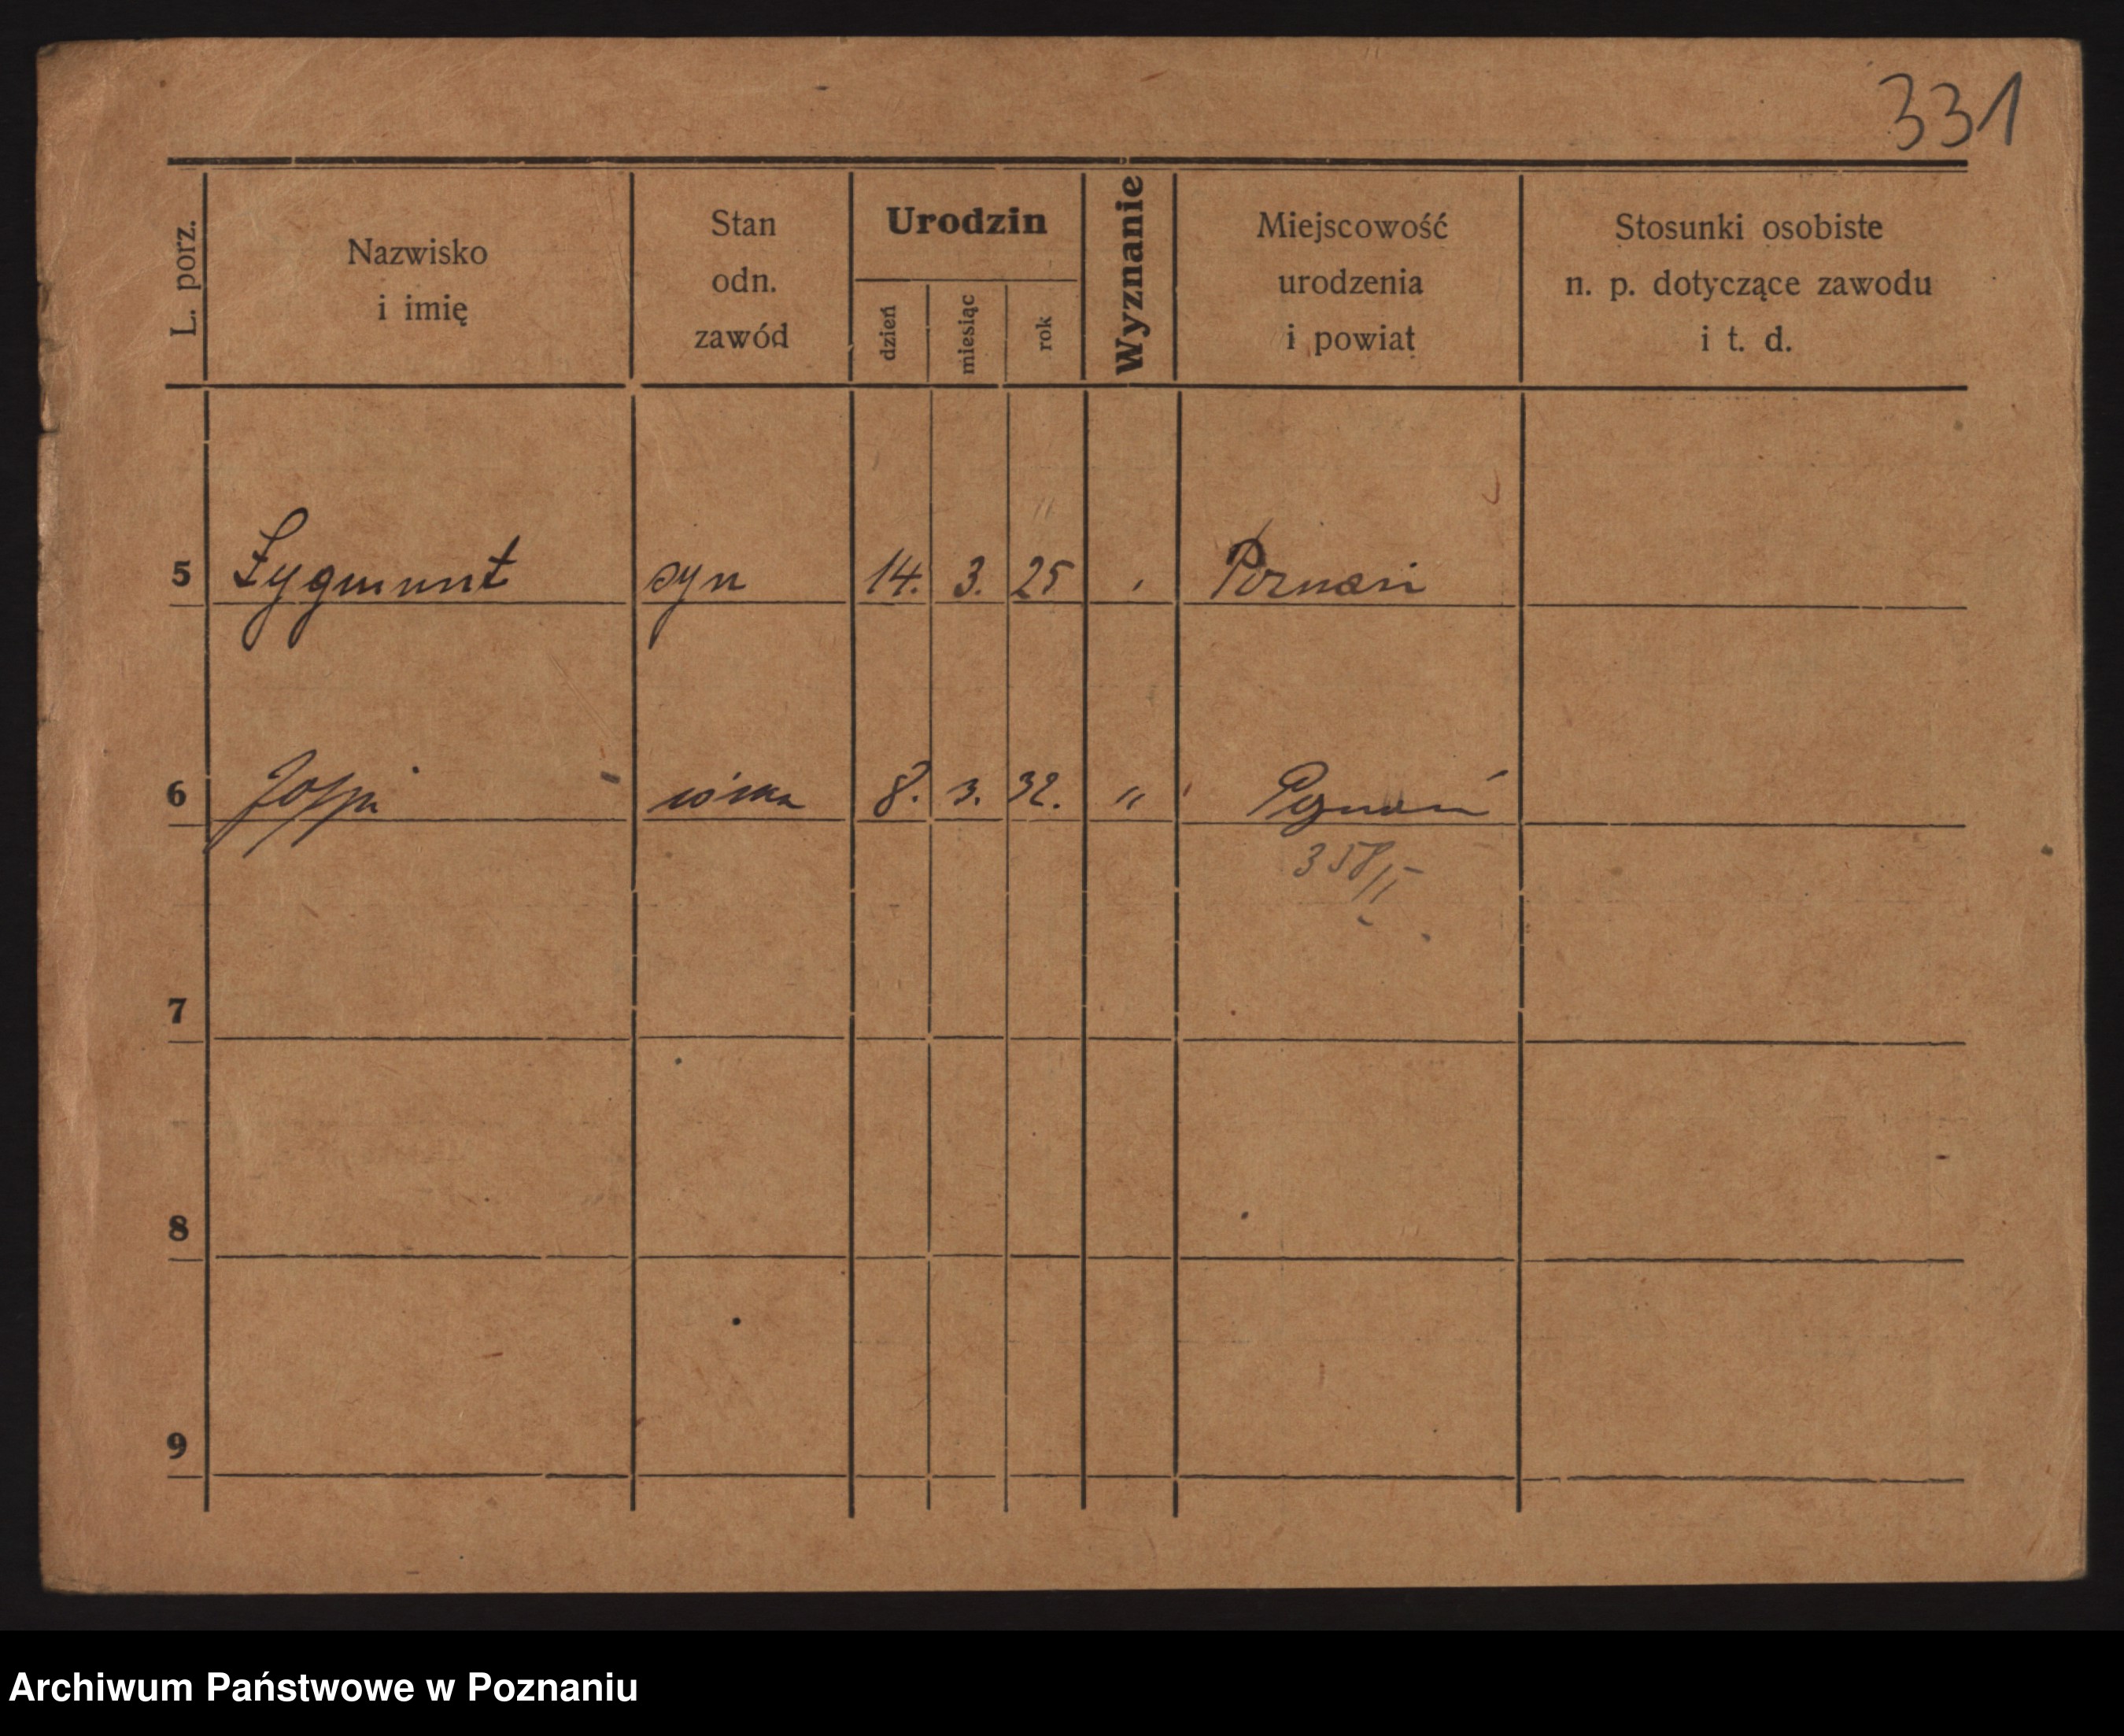 331
L. porz.
Nazwisko
i imię
Stan
odn.
zawód
Urodzin
dzień
miesiąc
rok
Wyznanie
Miejscowość
urodzenia
i powiat
Stosunki osobiste
n. p. dotyczące zawodu
i t. d.
5 Zygmunt syn 14. 3. 25 Poznań
6 Zofja córka 8. 3. 32. " Poznań
7
8
9
Archiwum Państwowe w Poznaniu